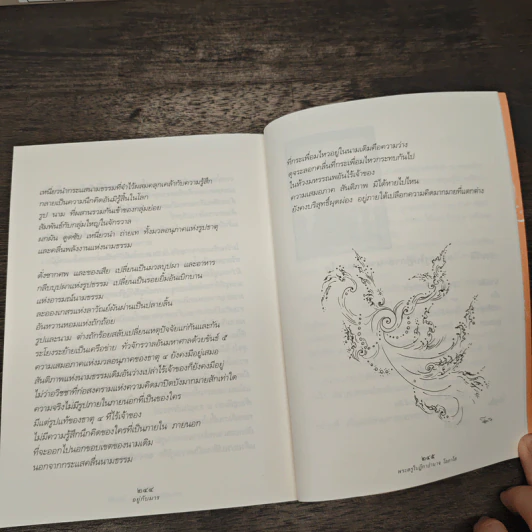 เหนี่ยวนำกระแสนามธรรมที่จำไว้ผสมคลุกเคล้ากับความรู้สึก
กลายเป็นความนึกคิดอันมีรู้สึ้นในโลก
รูป นาม ที่ผสานรวมกันเข้าของกลุ่มย่อย
สัมพันธ์กับกลุ่มใหญ่ในจักรวาล
ผลักดัน ดูดซับ เหนี่ยวนำ ถ่ายเท ทั้งมวลอนุภาคแห่งรูปธาตุ
และคลื่นพลังงานแห่งนามธรรม
ดั่งซากศพ และของเสีย เปลี่ยนเป็นมวลบุปผา และอาหาร
กลีบบุปผาแห่งรูปธรรม เปลี่ยนเป็นรอยยิ้มอันเบิกบาน
แห่งอารมณ์นามธรรม
ละอองเกสรแห่งลาวัณย์ผันผ่านเป็นปลายลิ้น
อันหวานหอมแห่งถักถ้อย
รูปและนาม ต่างถักร้อยสลับเปลี่ยนเหตุปัจจัยแก่กันและกัน
ระโยงระย้ายเป็นเครือข่าย ทั่วจักรวาลอันมหาศาลด้วยขันธ์ ๕
ความเสมอภาคแห่งมวลอนุภาคของธาตุ ๔ ยังคงมีอยู่เสมอ
สันติภาพแห่งนามธรรมเดิมอันว่างเปล่าไร้เจ้าของก็ยังคงมีอยู่
ไม่ว่าอวิชชาที่ก่อสงครามแห่งความคิดมาปิดบังมากมายสักเท่าใด
ความจริงไม่มีรูปภายในภายนอกที่เป็นของใคร
มีแต่รูปแท้ของธาตุ ๔ ที่ไร้เจ้าของ
ไม่มีความรู้สึกนึกคิดของใครที่เป็นภายใน ภายนอก
ที่จะออกไปนอกขอบเขตของนามเดิม
นอกจากกระแสคลื่นนามธรรม
๒๔๔
อยู่กับมาร
ที่กระเพื่อมไหวอยู่ในนามเดิมคือความว่าง
ดุจระลอกคลื่นที่กระเพื่อมไหวกระทบกันไป
ในห้วงมหรรณพอันไร้เจ้าของ
ความเสมอภาค สันติภาพ มิได้หายไปไหน
ยังคงบริสุทธิ์ผุดผ่อง อยู่ภายใต้เปลือกความคิดมากมายที่แตกต่าง
๒๔๕